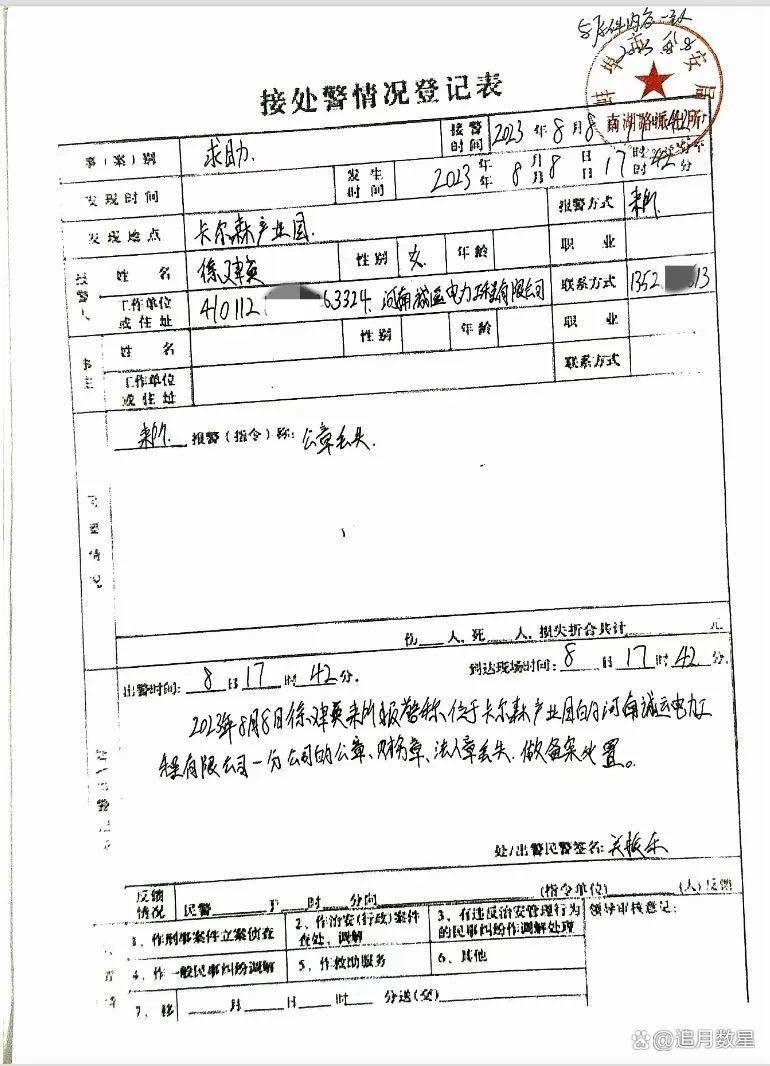 与原件内容一致
2023.8.8
蚌埠市公安局
南湖路派出所
接处警情况登记表
事(案)别 求助. 接警时间 2023年8月8日17时42分
发现时间 发生时间 2023年8月8日17时42分
发现地点 卡尔森产业园. 报警方式 来所.
报警人 姓名 徐建英 性别 女 年龄 职业
工作单位或住址 410112 63324. 河南诚运电力工程有限公司 联系方式 1352 13
事主 姓名 性别 年龄 职业
工作单位或住址 联系方式
来所. 报警(指令)称: 公章丢失.
伤 人,死 人,损失折合共计 元
出警时间: 8日17时42分. 到达现场时间: 8日17时42分.
2023年8月8日徐建英来所报警称,位于卡尔森产业园的河南诚运电力工
程有限公司一分公司的公章、财务章、法人章丢失.做备案处置。
处/出警民警签名:
反馈情况 民警 于 时 分向 (指令单位) (人)反馈
1、作刑事案件立案侦查 2、作治安(行政)案件查处、调解 3、有违反治安管理行为的民事纠纷作调解处理 领导审核意见:
4、作一般民事纠纷调解 5、作救助服务 6、其他
7、移 月 日 时 分送(交)
追月数星